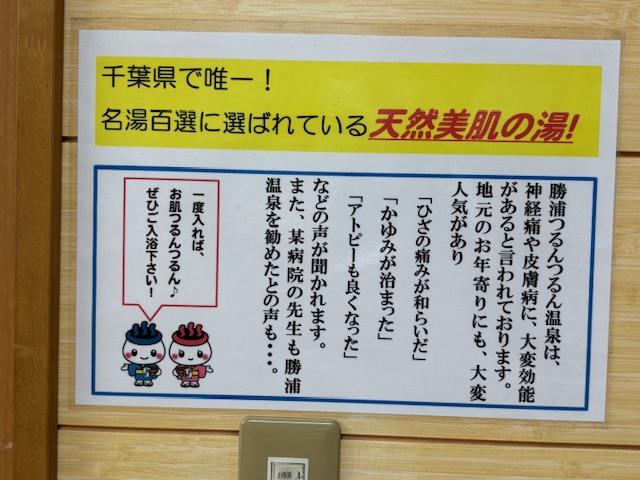 千葉県で唯一！
名湯百選に選ばれている天然美肌の湯!
勝浦つるんつるん温泉は、
神経痛や皮膚病に、大変効能
があると言われております。
地元のお年寄りにも、大変
人気があり
「ひざの痛みが和らいだ」
「かゆみが治まった」
「アトピーも良くなった」
などの声が聞かれます。
また、某病院の先生も勝浦
温泉を勧めたとの声も・・・。
一度入れば、
お肌つるんつるん♪
ぜひご入浴下さい！